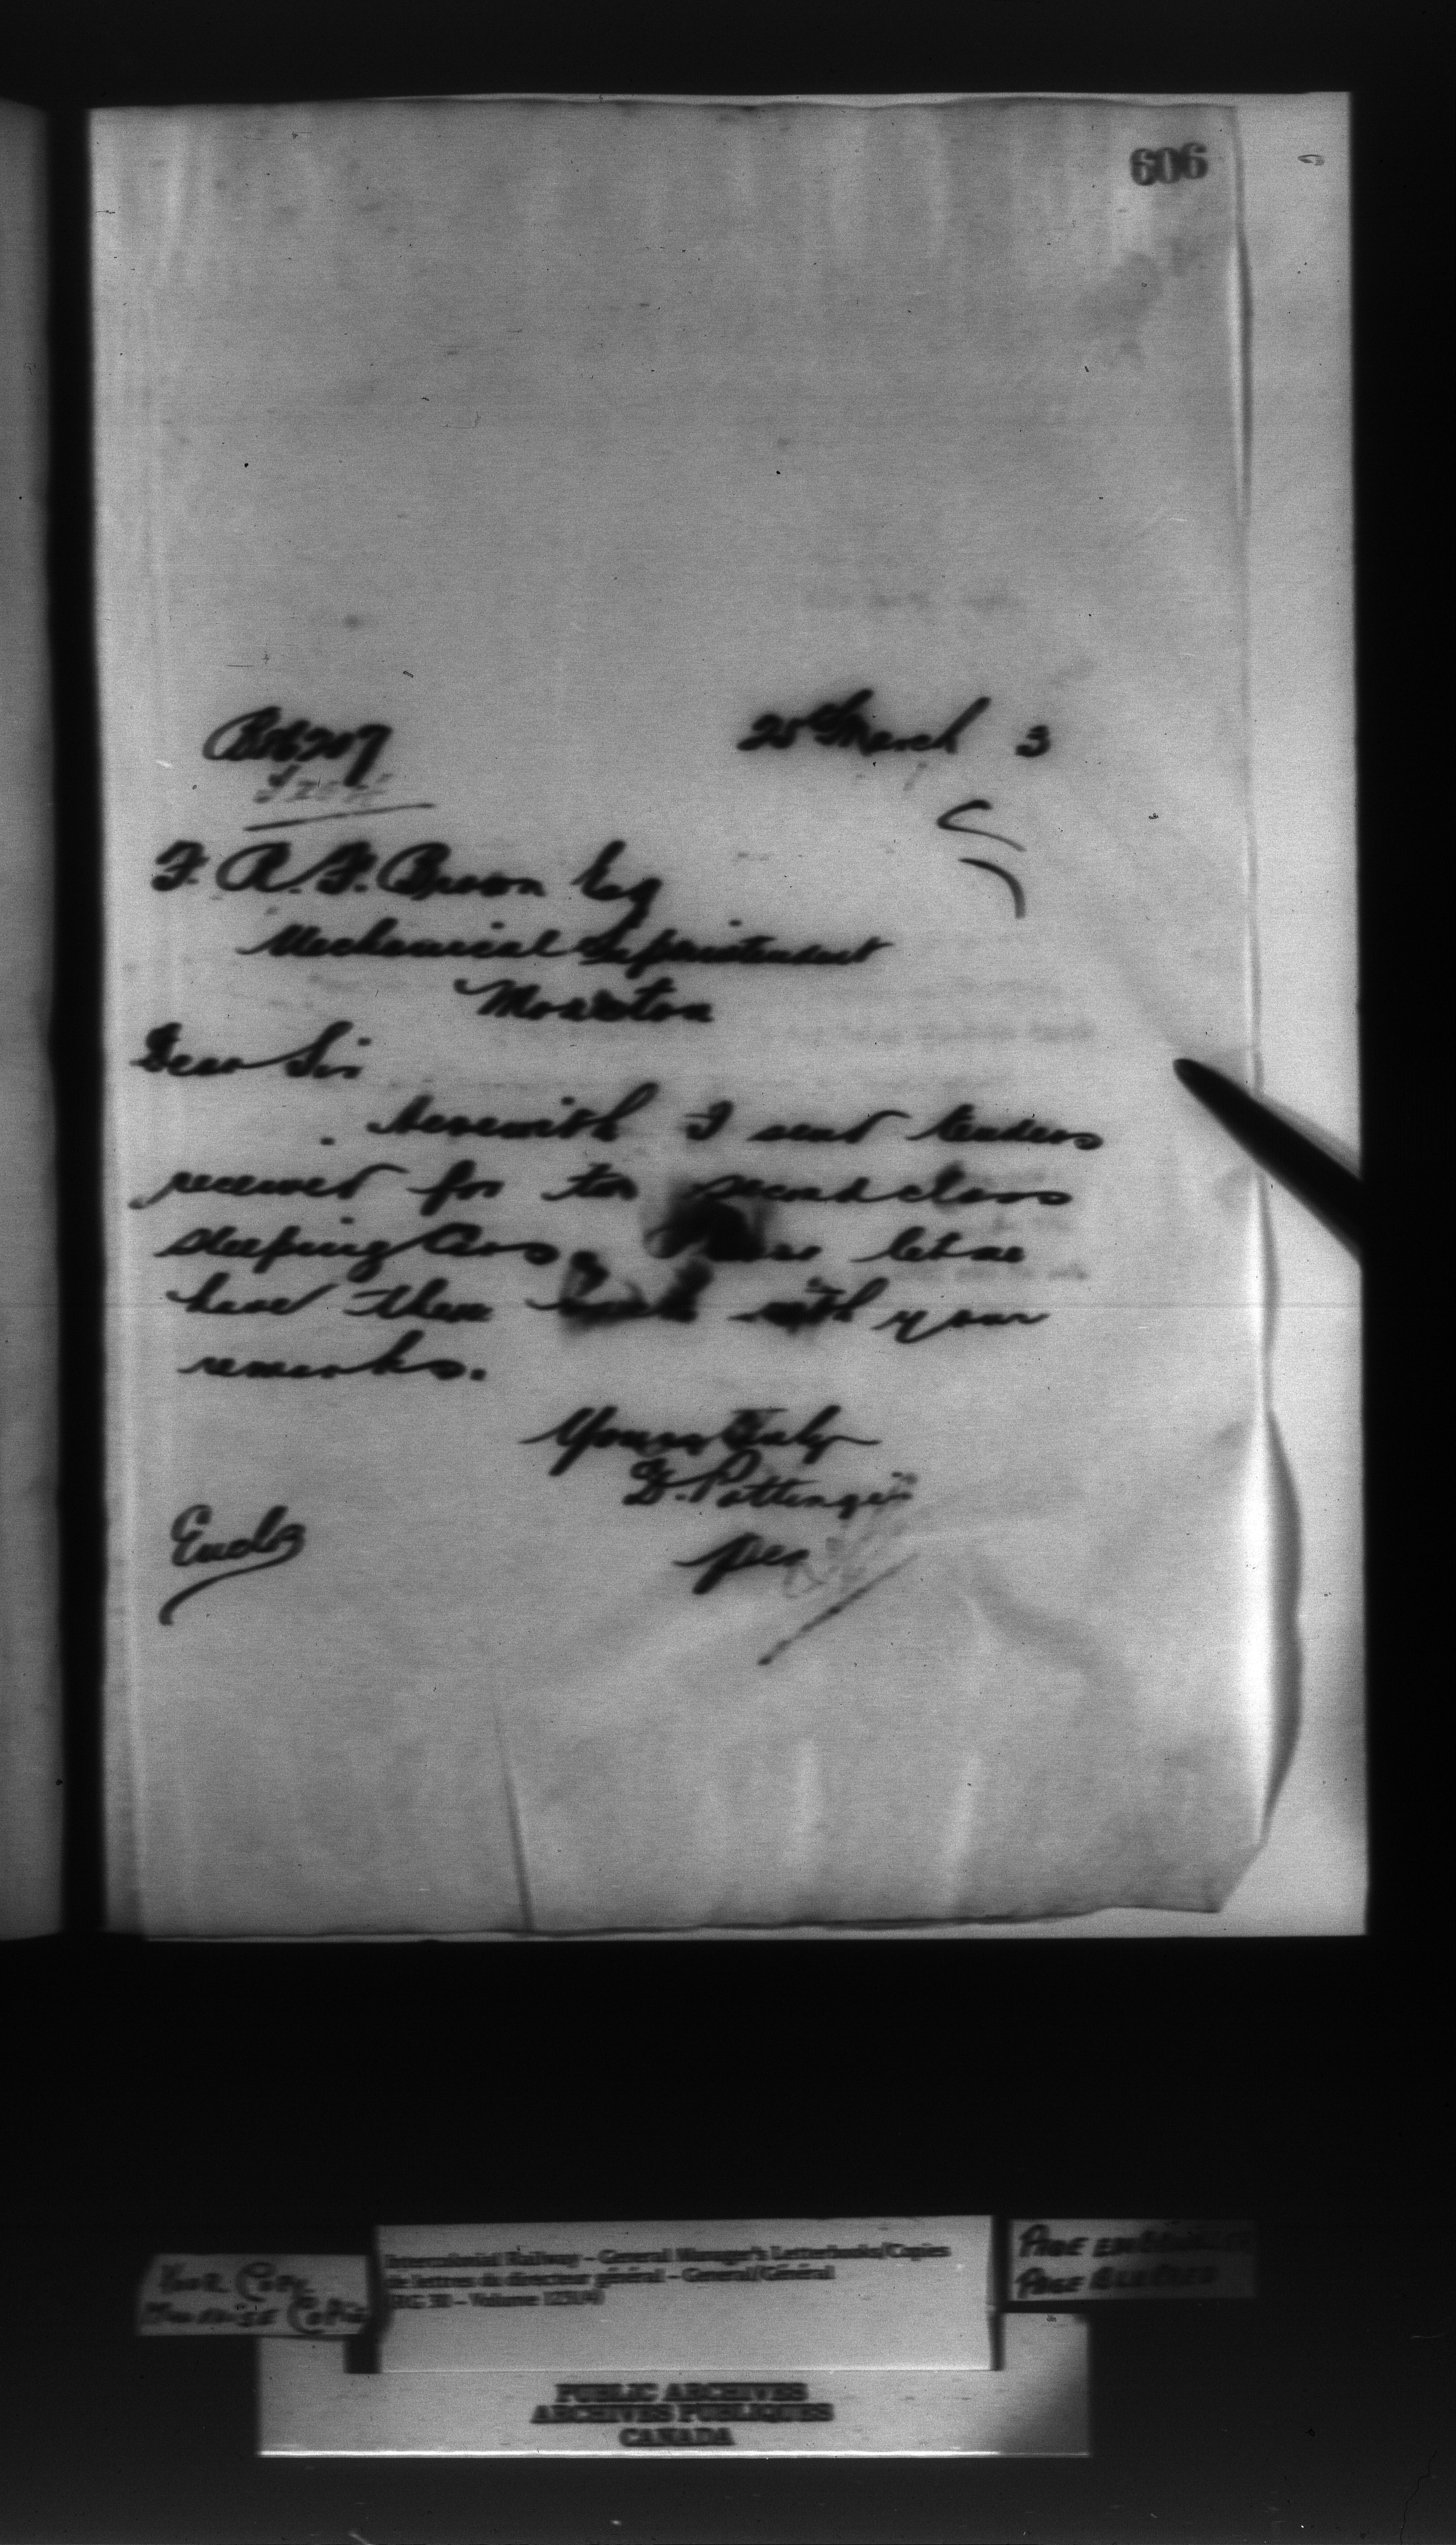 606
25th March 3
F. R. F. Brown Esq
Mechanical Supdrintendent
Moncton
Dear Sir
Herewith I send tenders
received for ten second class
sleeping Cars. Please let me
have them back with your
remarks.
Yours truly
D. Pottinger
per
Enclos
POOR COPY
MAUVAISE COPIE
Intercolonial Railway – General Manager's Letterbooks/Copies
de lettres du directeur général – General/Général
RG 30 – Volume
PAGE
PAGE BLURRED
PUBLIC ARCHIVES
ARCHIVES PUBLIQUES
CANADA